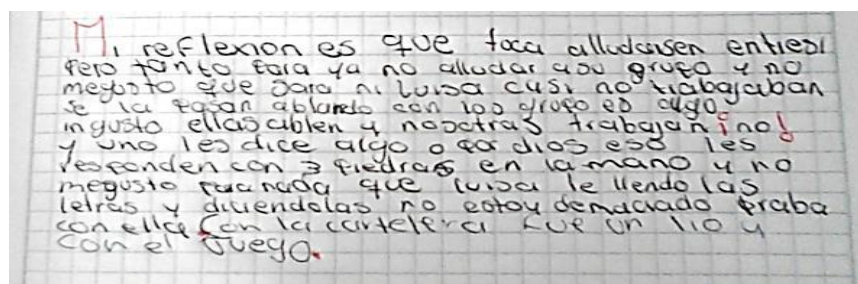 Mi reflexion es que toca alludarsen entresi
pero tanto sara ya no alludar a su grupo y no
megusto que sara ni luisa casi no trabajaban
se la pasan ablando con los grupo es algo
ingusto ellas ablen y nosotras trabajan ¡no!
y uno les dice algo o por dios eso les
responden con 3 piedras en la mano y no
megusto para nada que luisa le llendo las
letras y diciendolas no estoy demaciado braba
con ella con la cartelera fue un lio y
con el juego.